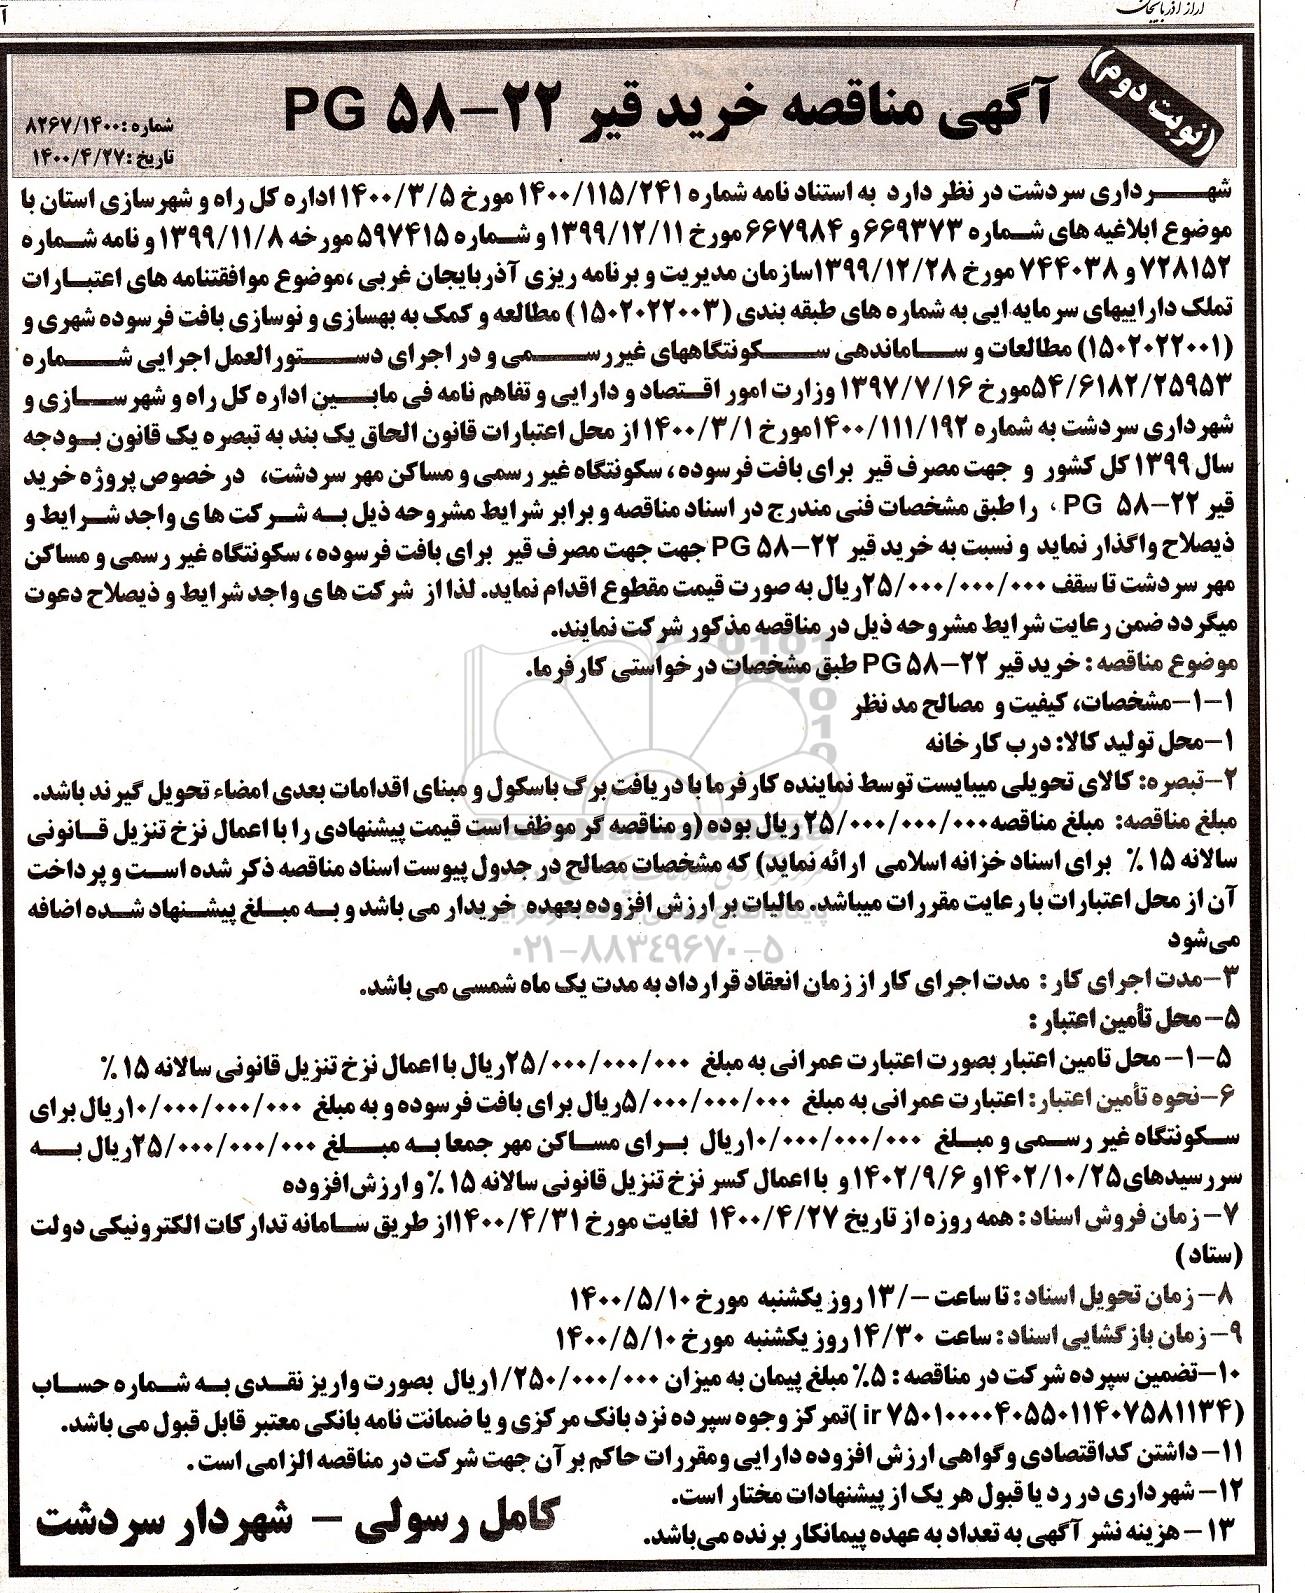 (نوبت دوم)
آگهی مناقصه خرید قیر PG ۵۸-۲۲
شماره: ۸۲۶۷/۱۴۰۰
تاریخ: ۱۴۰۰/۴/۲۷
شهرداری سردشت در نظر دارد به استناد نامه شماره ۱۴۰۰/۱۱۵/۲۴۱ مورخ ۱۴۰۰/۳/۵ اداره کل راه و شهرسازی استان با
موضوع ابلاغیه های شماره ۶۶۹۳۷۳ و ۶۶۷۹۸۴ مورخ ۱۳۹۹/۱۲/۱۱ و شماره ۵۹۷۴۱۵ مورخه ۱۳۹۹/۱۱/۸ و نامه شماره
۷۲۸۱۵۲ و ۷۴۴۰۳۸ مورخ ۱۳۹۹/۱۲/۲۸ سازمان مدیریت و برنامه ریزی آذربایجان غربی ،موضوع موافقتنامه های اعتبارات
تملک داراییهای سرمایه ایی به شماره های طبقه بندی (۱۵۰۲۰۲۲۰۰۳) مطالعه و کمک به بهسازی و نوسازی بافت فرسوده شهری و
(۱۵۰۲۰۲۲۰۰۱) مطالعات و ساماندهی سکونتگاههای غیررسمی و در اجرای دستورالعمل اجرایی شماره
۵۴/۶۱۸۲/۲۵۹۵۳مورخ ۱۳۹۷/۷/۱۶ وزارت امور اقتصاد و دارایی و تفاهم نامه فی مابین اداره کل راه و شهرسازی و
شهرداری سردشت به شماره ۱۴۰۰/۱۱۱/۱۹۲مورخ ۱۴۰۰/۳/۱ از محل اعتبارات قانون الحاق یک بند به تبصره یک قانون بودجه
سال ۱۳۹۹ کل کشور و جهت مصرف قیر برای بافت فرسوده ، سکونتگاه غیر رسمی و مساکن مهر سردشت، در خصوص پروژه خرید
قیر PG ۵۸-۲۲ ، را طبق مشخصات فنی مندرج در اسناد مناقصه و برابر شرایط مشروحه ذیل به شرکت های واجد شرایط و
ذیصلاح واگذار نماید و نسبت به خرید قیر PG ۵۸-۲۲ جهت جهت مصرف قیر برای بافت فرسوده ، سکونتگاه غیر رسمی و مساکن
مهر سردشت تا سقف ۲۵/۰۰۰/۰۰۰/۰۰۰ریال به صورت قیمت مقطوع اقدام نماید. لذا از شرکت ها ی واجد شرایط و ذیصلاح دعوت
میگردد ضمن رعایت شرایط مشروحه ذیل در مناقصه مذکور شرکت نمایند.
موضوع مناقصه : خرید قیر PG ۵۸-۲۲ طبق مشخصات درخواستی کارفرما.
۱-۱-مشخصات، کیفیت و مصالح مد نظر
۱-محل تولید کالا: درب کارخانه
۲-تبصره: کالای تحویلی میبایست توسط نماینده کارفرما با دریافت برگ باسکول و مبنای اقدامات بعدی امضاء تحویل گیرند باشد.
مبلغ مناقصه: مبلغ مناقصه۲۵/۰۰۰/۰۰۰/۰۰۰ ریال بوده (و مناقصه گر موظف است قیمت پیشنهادی را با اعمال نزخ تنزیل قانونی
سالانه ۱۵ ٪ برای اسناد خزانه اسلامی ارائه نماید) که مشخصات مصالح در جدول پیوست اسناد مناقصه ذکر شده است و پرداخت
آن از محل اعتبارات با رعایت مقررات میباشد. مالیات بر ارزش افزوده بعهده خریدار می باشد و به مبلغ پیشنهاد شده اضافه
می‌شود
۳-مدت اجرای کار : مدت اجرای کار از زمان انعقاد قرارداد به مدت یک ماه شمسی می باشد.
۵- محل تأمین اعتبار :
۵-۱- محل تامین اعتبار بصورت اعتبارت عمرانی به مبلغ ۲۵/۰۰۰/۰۰۰/۰۰۰ریال با اعمال نزخ تنزیل قانونی سالانه ۱۵ ٪
۶-نحوه تأمین اعتبار: اعتبارت عمرانی به مبلغ ۵/۰۰۰/۰۰۰/۰۰۰ریال برای بافت فرسوده و به مبلغ ۱۰/۰۰۰/۰۰۰/۰۰۰ریال برای
سکونتگاه غیر رسمی و مبلغ ۱۰/۰۰۰/۰۰۰/۰۰۰ریال برای مساکن مهر جمعا به مبلغ ۲۵/۰۰۰/۰۰۰/۰۰۰ریال به
سررسیدهای۱۴۰۲/۱۰/۲۵و ۱۴۰۲/۹/۶ و با اعمال کسر نزخ تنزیل قانونی سالانه ۱۵ ٪ و ارزش‌افزوده
۷- زمان فروش اسناد : همه روزه از تاریخ ۱۴۰۰/۴/۲۷ لغایت مورخ ۱۴۰۰/۴/۳۱از طریق سامانه تدارکات الکترونیکی دولت
(ستاد )
۸- زمان تحویل اسناد : تا ساعت -/۱۳ روز یکشنبه مورخ ۱۴۰۰/۵/۱۰
۹- زمان بازگشایی اسناد : ساعت ۱۴/۳۰ روز یکشنبه مورخ ۱۴۰۰/۵/۱۰
۱۰-تضمین سپرده شرکت در مناقصه : ۵٪ مبلغ پیمان به میزان ۱/۲۵۰/۰۰۰/۰۰۰ریال بصورت واریز نقدی به شماره حساب
(ir ۷۵۰۱۰۰۰۰۴۰۵۵۰۱۱۴۰۷۵۸۱۱۳۴)تمرکز وجوه سپرده نزد بانک مرکزی و یا ضمانت نامه بانکی معتبر قابل قبول می باشد.
۱۱- داشتن کداقتصادی و گواهی ارزش افزوده دارایی ومقررات حاکم بر آن جهت شرکت در مناقصه الزامی است .
۱۲- شهرداری در رد یا قبول هر یک از پیشنهادات مختار است.
۱۳- هزینه نشر آگهی به تعداد به عهده پیمانکار برنده می‌باشد.
کامل رسولی - شهردار سردشت
۰۲۱-۸۸۳۴۹۶۷۰-۵